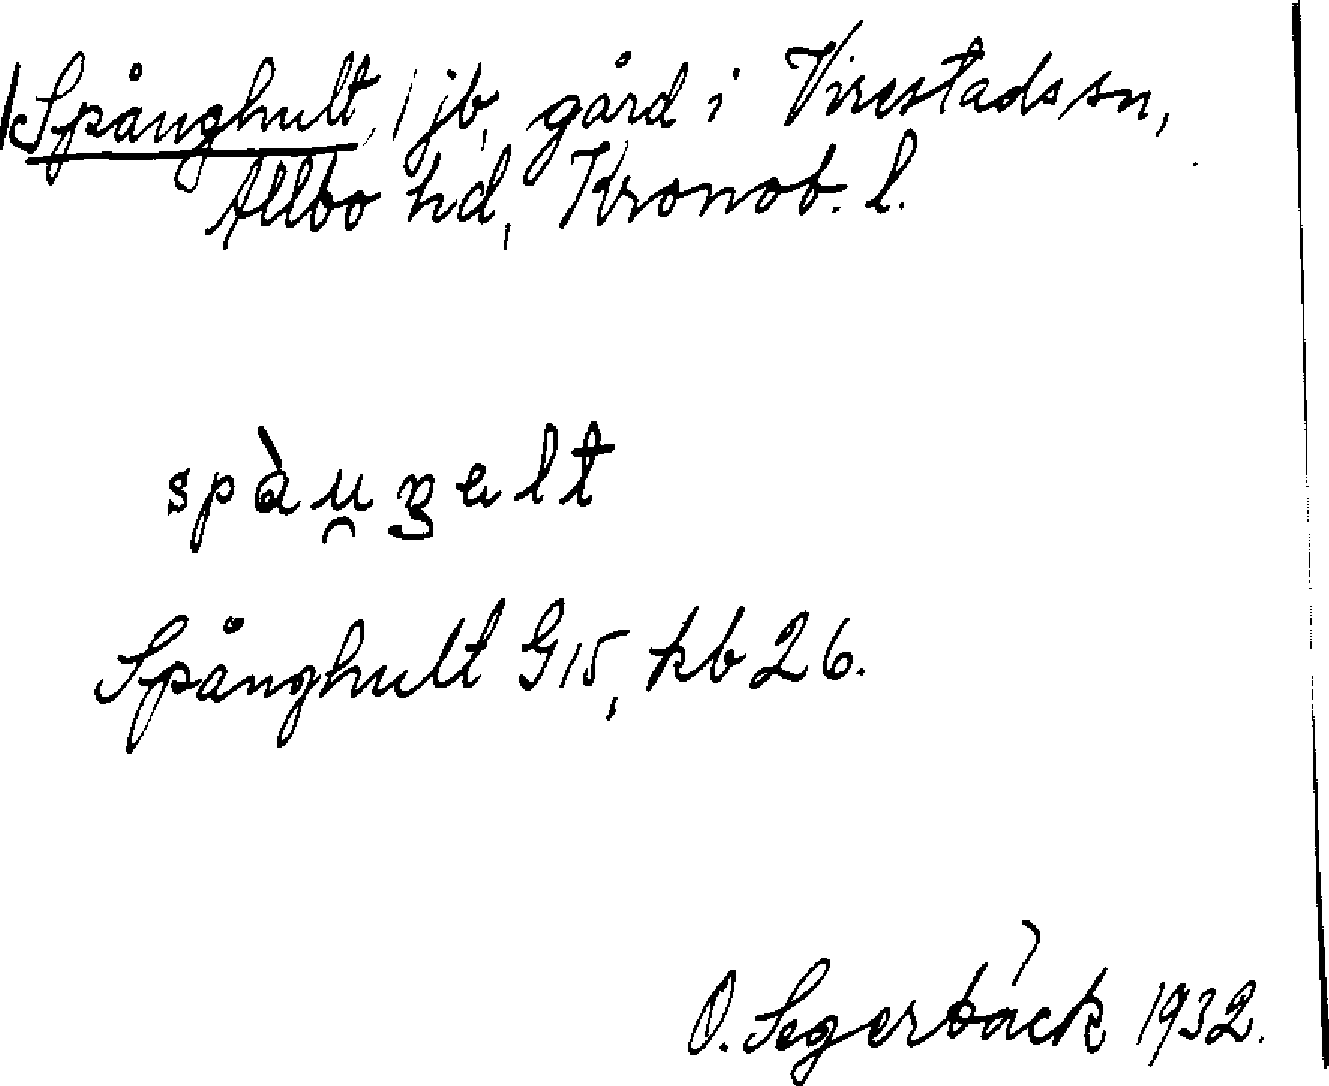 Spånghult, jb, gård i Virestads sn,
Allbo hd, Kronob. l.
Spånghult G15, kb 26.
O. Segerbäck 1932.